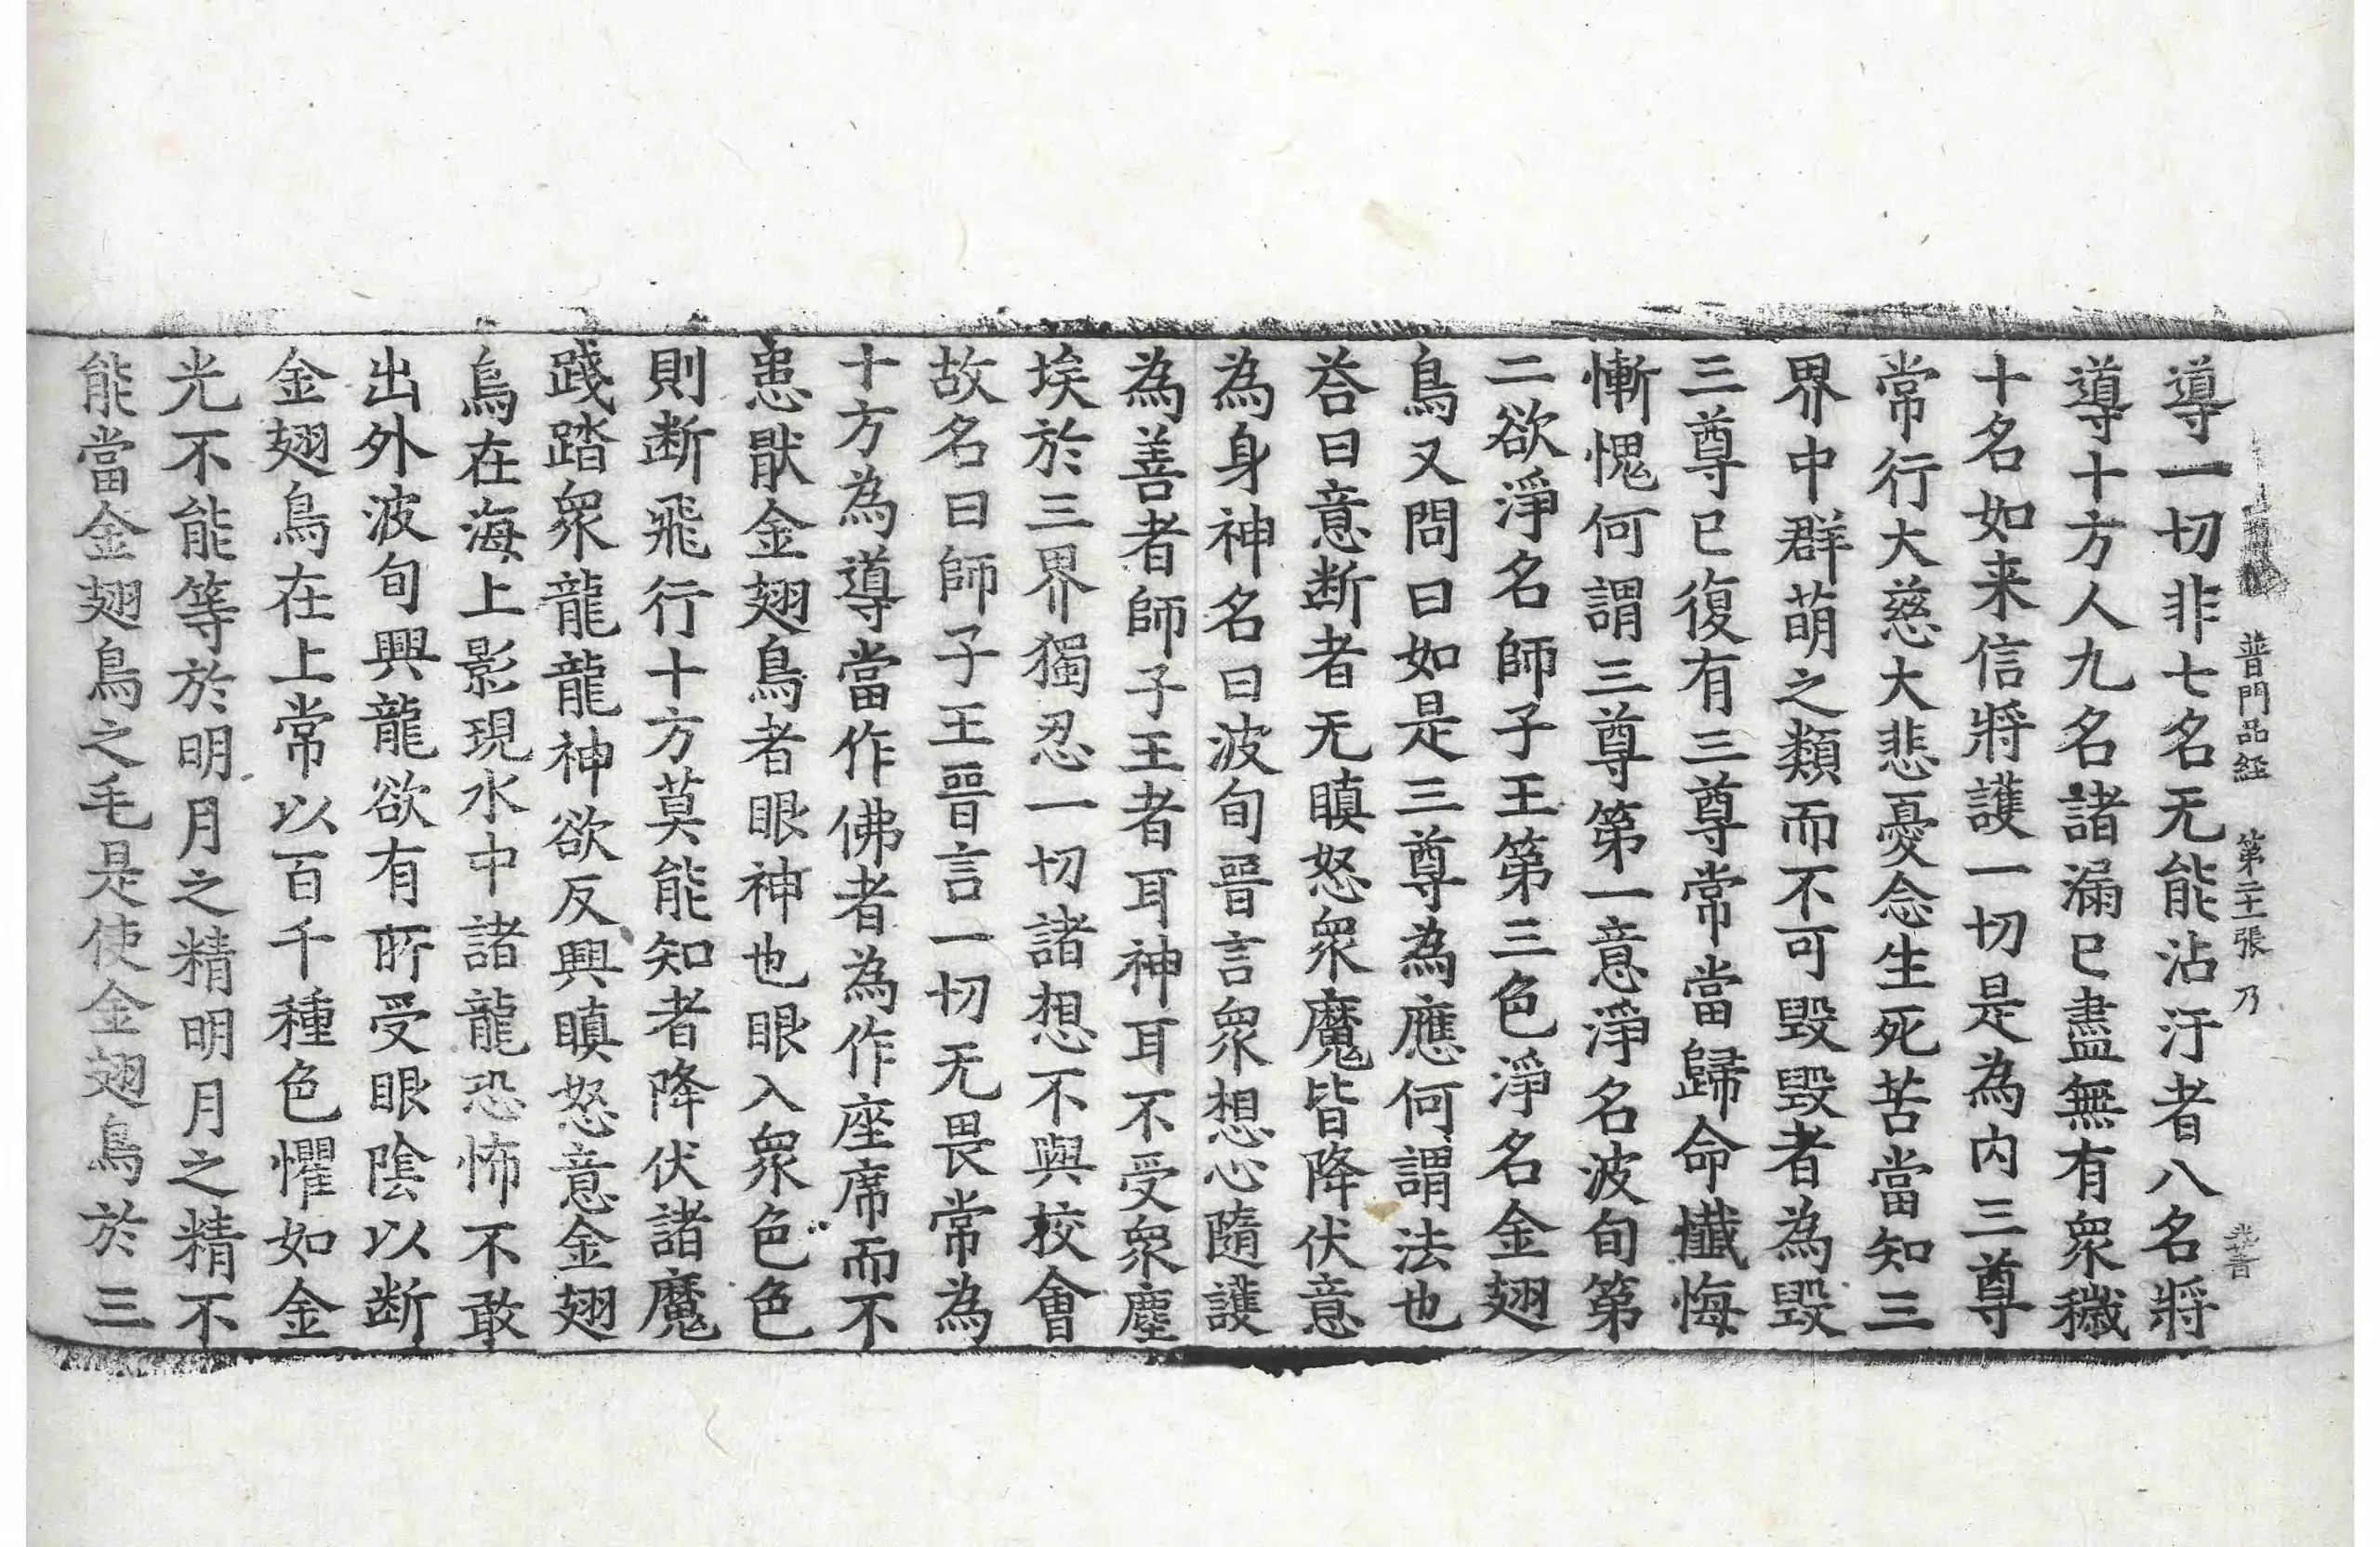 普門品経 第二十張 乃
導一切非七名无能沾汙者八名將
導十方人九名諸漏已盡無有衆穢
十名如来信將護一切是為内三尊
常行大慈大悲憂念生死苦當知三
界中群萌之類而不可毀毀者為毀
三尊已復有三尊常當歸命懺悔
慚愧何謂三尊第一意淨名波旬第
二欲淨名師子王第三色淨名金翅
鳥又問曰如是三尊為應何謂法也
荅曰意断者无瞋怒衆魔皆降伏意
為身神名曰波旬晉言衆想心隨護
為善者師子王者耳神耳不受衆塵
埃於三界獨忍一切諸想不與挍會
故名曰師子王晉言一切无畏常為
十方為導當作佛者為作座席而不
恚猒金翅鳥者眼神也眼入衆色色
則断飛行十方莫能知者降伏諸魔
踐踏衆龍龍神欲反興瞋怒意金翅
鳥在海上影現水中諸龍恐怖不敢
出外波旬興龍欲有所受眼陰以断
金翅鳥在上常以百千種色懼如金
光不能等於明月之精明月之精不
能當金翅鳥之毛是使金翅鳥於三